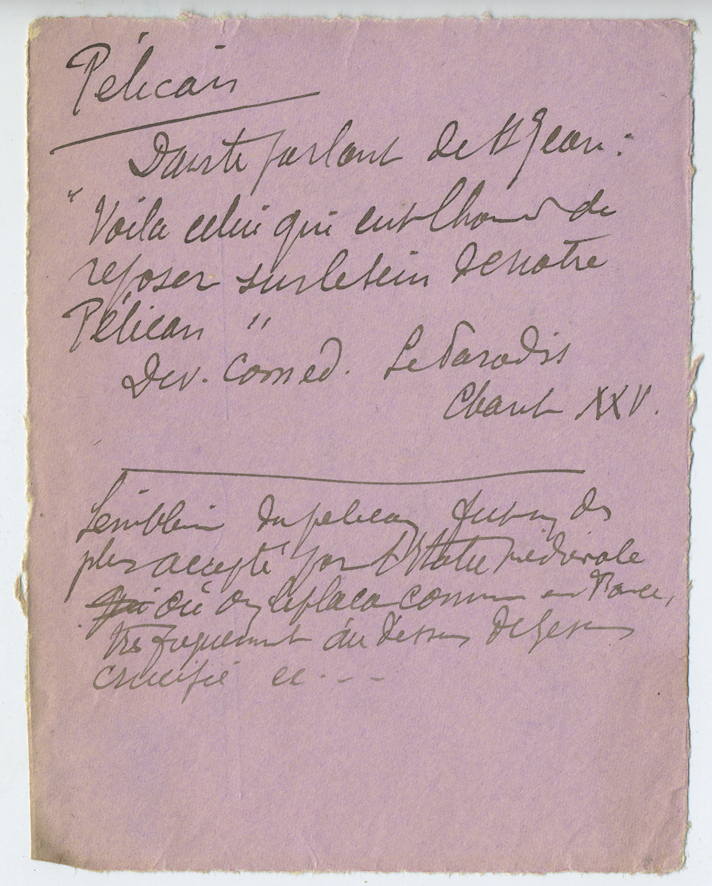 Pélican
Dante parlant de St Jean :
"Voila celui qui eut l'honneur de
reposer sur le sein de notre
Pélican "
Div. Comed. Le Paradis
Chant XXV.
L'emblème du pelican fut un des
plus accepté par l'Italie médiévale
où on le plaça comme en France,
très frequemment au dessus de Jesus
crucifié